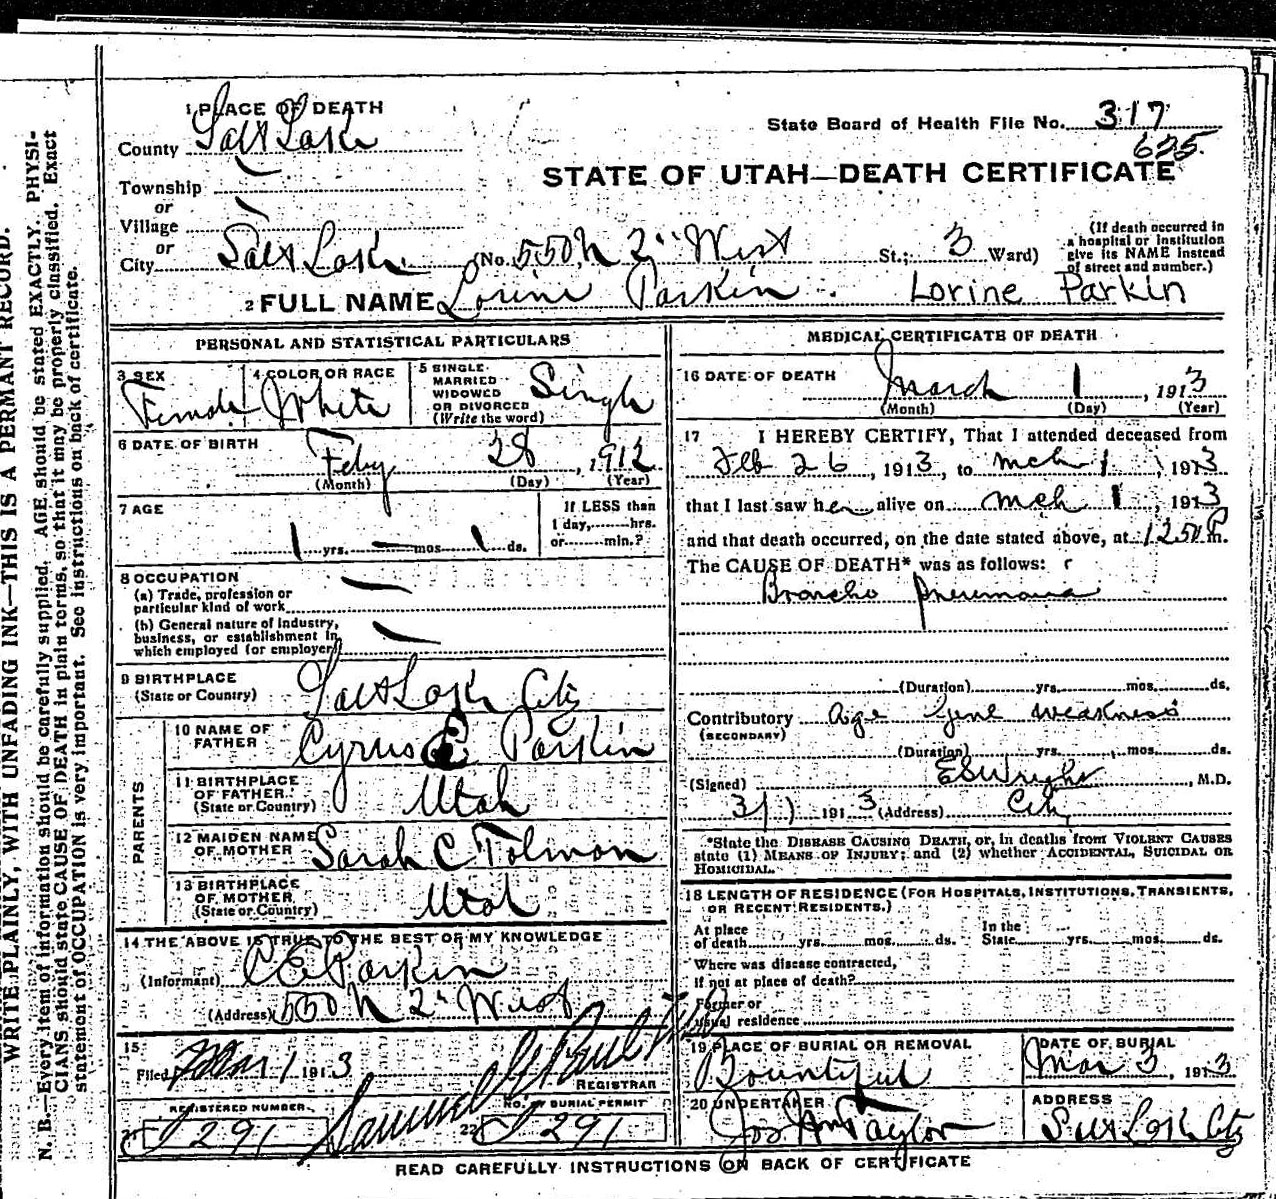 WRITE PLAINLY, WITH UNFADING INK—THIS IS A PERMANT RECORD.
N. B.—Every item of information should be carefully supplied. AGE should be stated EXACTLY. PHYSI-
CIANS should state CAUSE OF DEATH in plain terms, so that it may be properly classified. Exact
statement of OCCUPATION is very important. See instructions on back of certificate.
1 PLACE OF DEATH
County Salt Lake
State Board of Health File No. 317
625
STATE OF UTAH—DEATH CERTIFICATE
Township
or
Village
or
City Salt Lake (No. 550 N 2" West St.; 3 Ward)
(If death occurred in
a hospital or institution
give its NAME instead
of street and number.)
2 FULL NAME Lorine Parkin Lorine Parkin
PERSONAL AND STATISTICAL PARTICULARS
3 SEX
Female
4 COLOR OR RACE
White
5 SINGLE
MARRIED
WIDOWED
OR DIVORCED
(Write the word)
Single
6 DATE OF BIRTH
Feby 28, 1912
(Month) (Day) (Year)
7 AGE
1 yrs. — mos. 1 ds.
If LESS than
1 day, hrs.
or min.?
8 OCCUPATION
(a) Trade, profession or
particular kind of work
(b) General nature of industry,
business, or establishment in
which employed (or employer)
9 BIRTHPLACE
(State or Country)
Salt Lake City
PARENTS
10 NAME OF
FATHER
Cyrus E Parkin
11 BIRTHPLACE
OF FATHER
(State or Country)
Utah
12 MAIDEN NAME
OF MOTHER
Sarah C Tolman
13 BIRTHPLACE
OF MOTHER
(State or Country)
Utah
14 THE ABOVE IS TRUE TO THE BEST OF MY KNOWLEDGE
(Informant) C E Parkin
(Address) 550 N 2" West
15
Filed Mar 1 1913
REGISTRAR
REGISTERED NUMBER
291
22 NO. OF BURIAL PERMIT
291
MEDICAL CERTIFICATE OF DEATH
16 DATE OF DEATH
March 1, 1913
(Month) (Day) (Year)
17 I HEREBY CERTIFY, That I attended deceased from
Feb 26, 1913, to Mch 1, 1913
that I last saw her alive on Mch 1, 1913
and that death occurred, on the date stated above, at 1250 P m.
The CAUSE OF DEATH* was as follows:
Broncho pneumonia
(Duration) yrs. mos. ds.
Contributory Age Genl weakness
(SECONDARY)
(Duration) yrs. mos. ds.
(Signed) E S Wright, M.D.
3/1 1913 (Address) City
*State the DISEASE CAUSING DEATH, or, in deaths from VIOLENT CAUSES
state (1) MEANS OF INJURY; and (2) whether ACCIDENTAL, SUICIDAL OR
HOMICIDAL.
18 LENGTH OF RESIDENCE (FOR HOSPITALS, INSTITUTIONS, TRANSIENTS,
OR RECENT RESIDENTS.)
At place
of death yrs. mos. ds.
In the
State yrs. mos. ds.
Where was disease contracted,
If not at place of death?
Former or
usual residence
19 PLACE OF BURIAL OR REMOVAL
Bountiful
DATE OF BURIAL
Mar 3, 1913
20 UNDERTAKER
Jos Wm Taylor
ADDRESS
Salt Lake City
READ CAREFULLY INSTRUCTIONS ON BACK OF CERTIFICATE